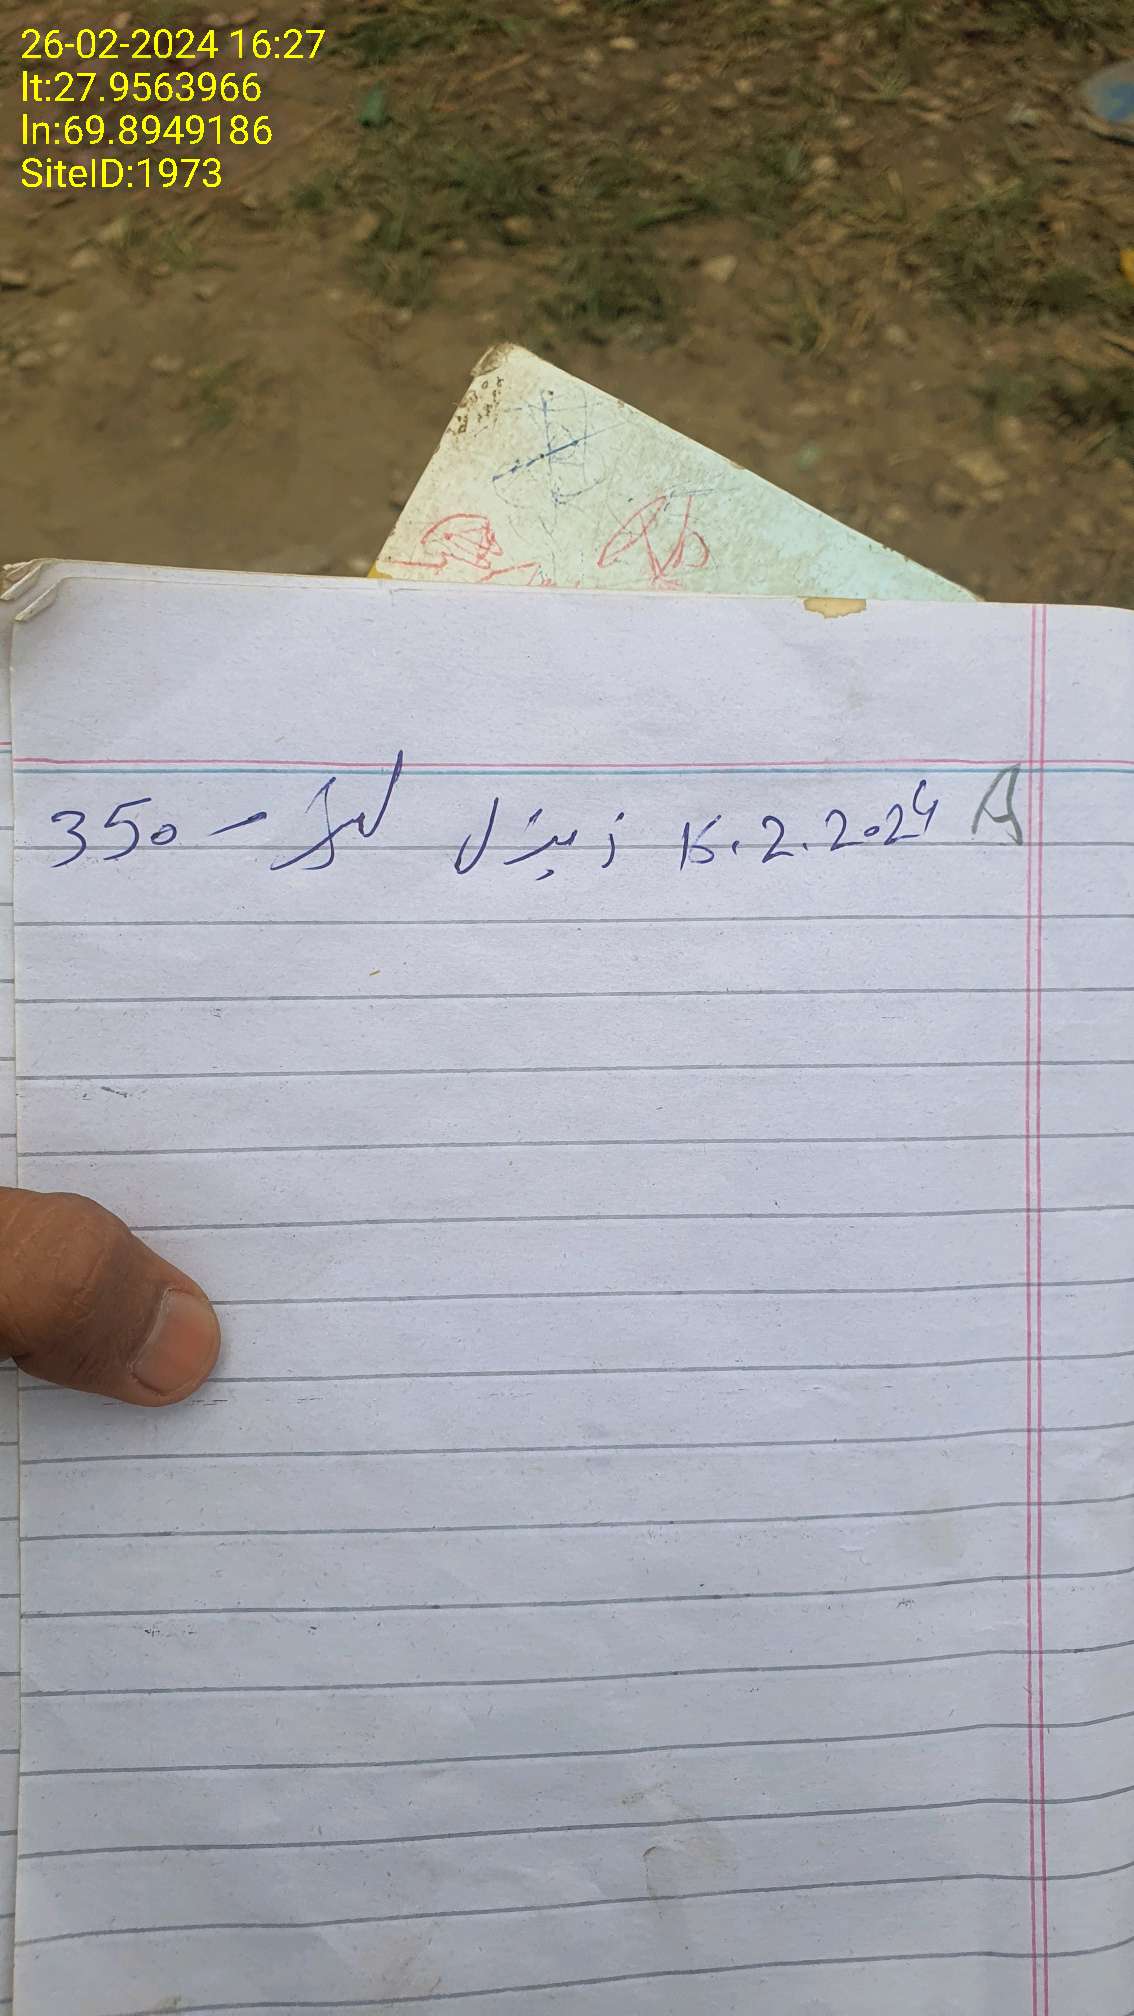 26-02-2024 16:27
lt:27.9563966
ln:69.8949186
SiteID:1973
15.2.2024 ڈیزل لیٹر - 350